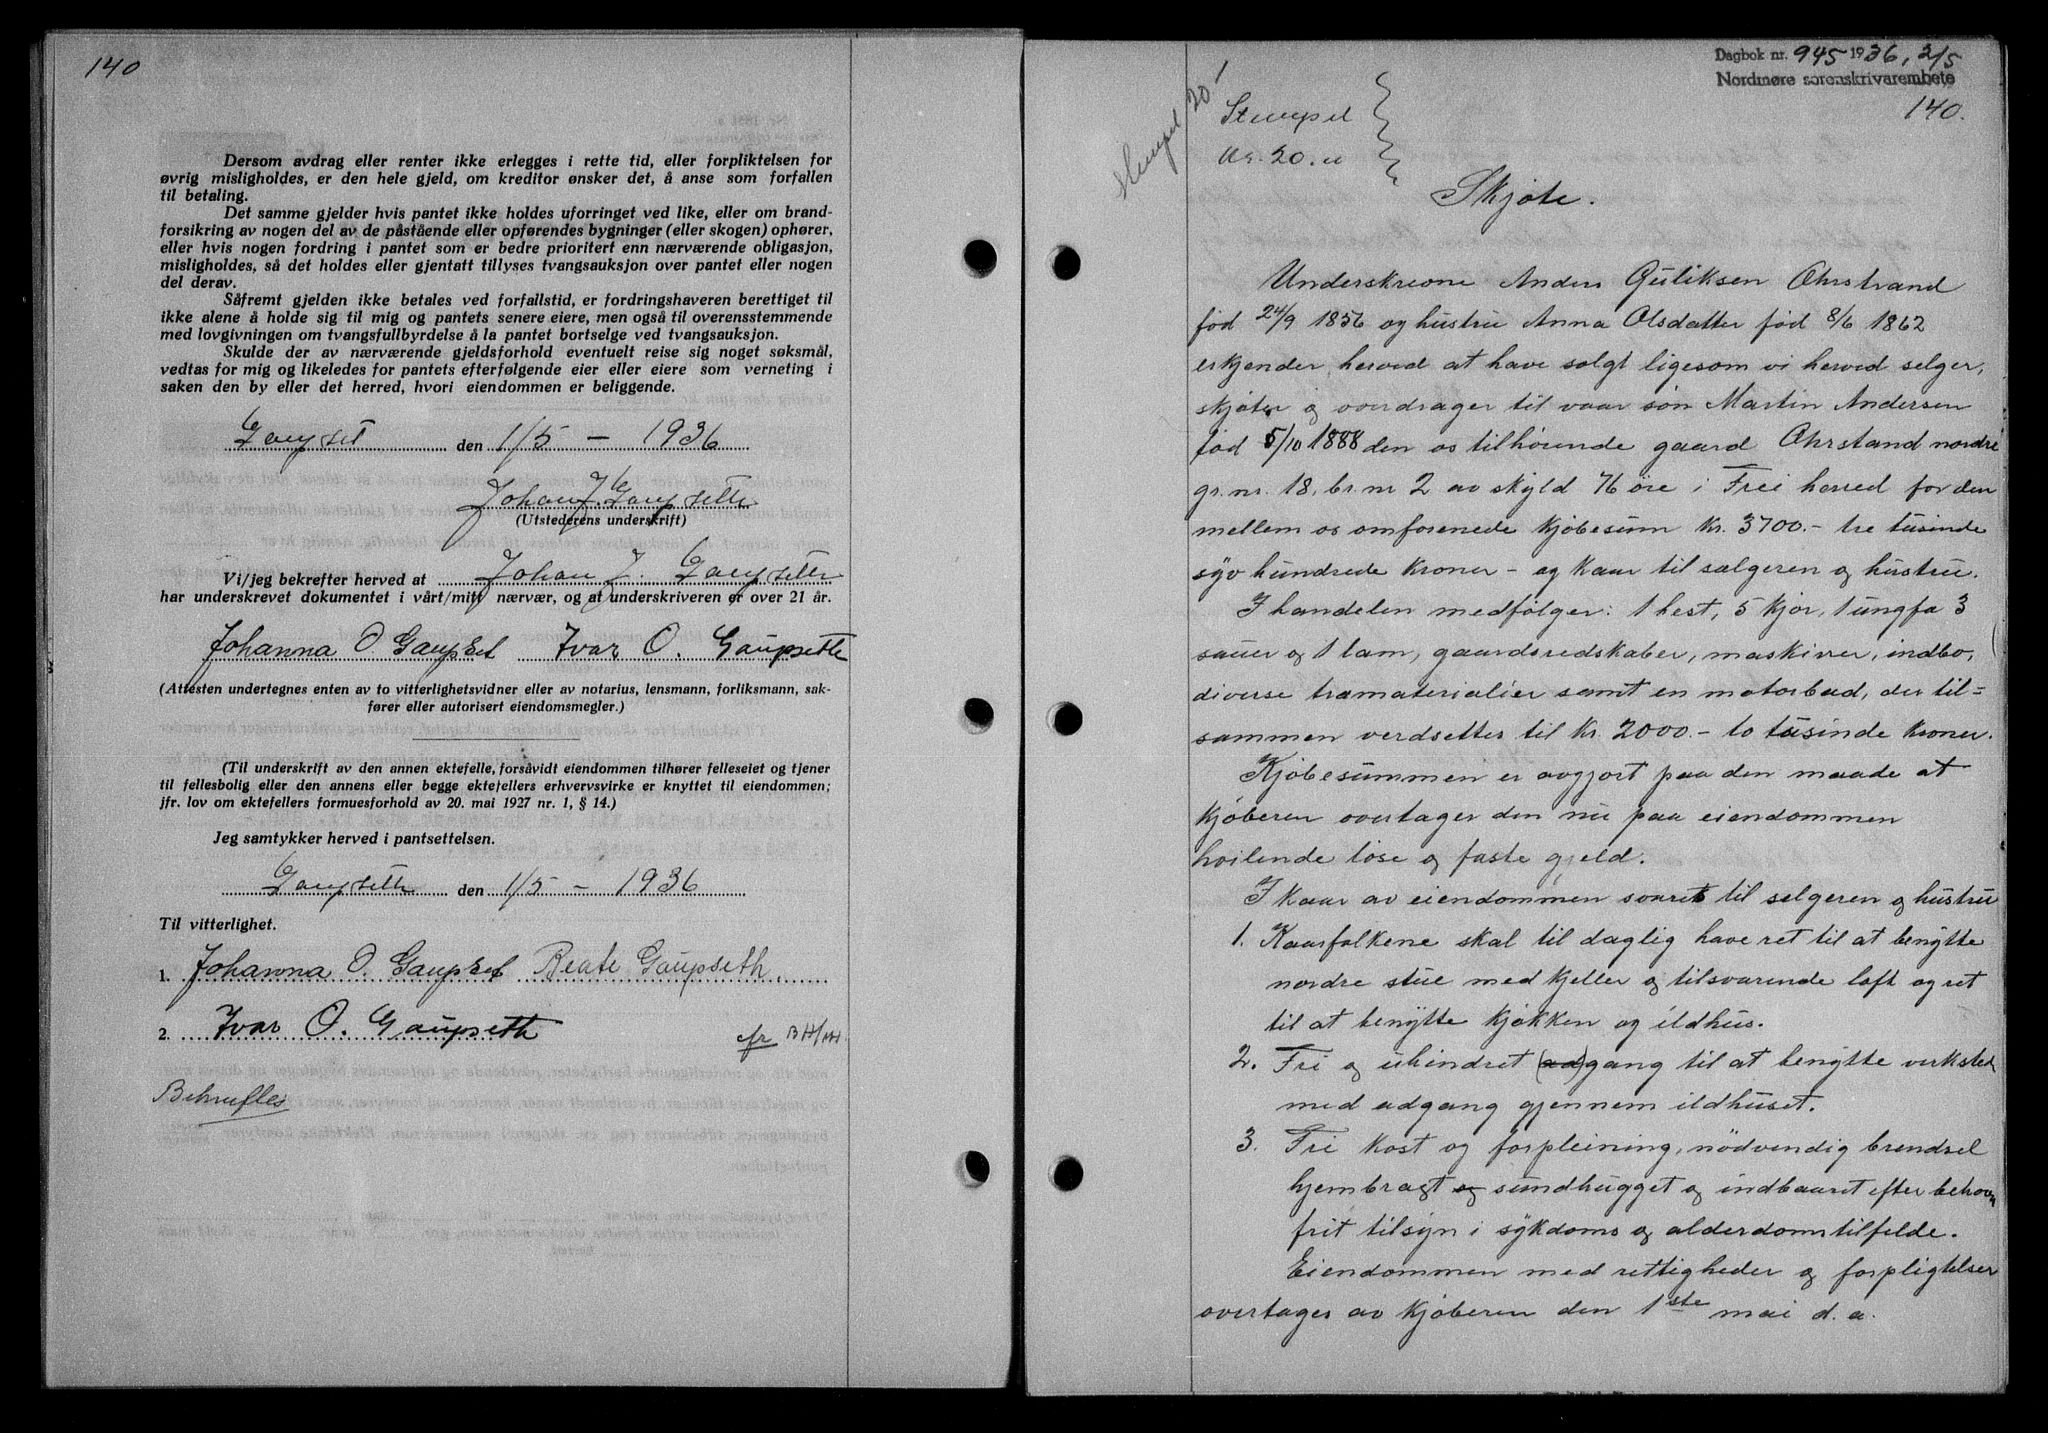 140
Dersom avdrag eller renter ikke erlegges i rette tid, eller forpliktelsen for
øvrig misligholdes, er den hele gjeld, om kreditor ønsker det, å anse som forfallen
til betaling.
Det samme gjelder hvis pantet ikke holdes uforringet ved like, eller om brand-
forsikring av nogen del av de påstående eller opførendes bygninger (eller skogen) ophører,
eller hvis nogen fordring i pantet som er bedre prioritert enn nærværende obligasjon,
misligholdes, så det holdes eller gjentatt tillyses tvangsauksjon over pantet eller nogen
del derav.
Såfremt gjelden ikke betales ved forfallstid, er fordringshaveren berettiget til
ikke alene å holde sig til mig og pantets senere eiere, men også til overensstemmende
med lovgivningen om tvangsfullbyrdelse å la pantet bortselge ved tvangsauksjon.
Skulde der av nærværende gjeldsforhold eventuelt reise sig noget søksmål,
vedtas for mig og likeledes for pantets efterfølgende eier eller eiere som verneting i
saken den by eller det herred, hvori eiendommen er beliggende.
Gaupset den 1/5 - 1936
Johan J. Gaupseth
(Utstederens underskrift)
Vi/jeg bekrefter herved at Johan J. Gaupseth
har underskrevet dokumentet i vårt/mitt nærvær, og at underskriveren er over 21 år.
Johanna O. Gaupset Ivar O. Gaupseth
(Attesten undertegnes enten av to vitterlighetsvidner eller av notarius, lensmann, forliksmann, sak-
fører eller autorisert eiendomsmegler.)
(Til underskrift av den annen ektefelle, forsåvidt eiendommen tilhører felleseiet og tjener
til fellesbolig eller den annens eller begge ektefellers erhvervsvirke er knyttet til eiendommen;
jfr. lov om ektefellers formuesforhold av 20. mai 1927 nr. 1, § 14.)
Jeg samtykker herved i pantsettelsen.
Gaupseth den 1/5 - 1936
Til vitterlighet.
1. Johanna O. Gaupset Beate Gaupseth
2. Ivar O. Gaupseth
cfr
Bekreftes
Dagbok nr. 945 1936, 2/5
Nordmøre sorenskrivarembete
140.
Stempel 20
Stempel
Kr. 20.
Skjøte.
Underskrevne Anders Guliksen Ohrstrand
fød 24/9 1856 og hustru Anna Olsdatter fød 8/6 1862
erkjender herved at have solgt ligesom vi herved selger,
skjøter og overdrager til vaar søn Martin Andersen
fød 5/10 1888 den os tilhørende gaard Ohrstand nordre
gr.nr. 18, br. nr 2 av skyld 76 øre i Frei herred for den
mellem os omforenede kjøbesum kr. 3700.- tre tusinde
syv hundrede kroner - og kaar til sælgeren og hustru.
I handelen medfølger: 1 hest, 5 kjør, 1 ungfæ 3
sauer og 1 lam, gaardsredskaber, maskiner, indbo,
diverse træmaterialier samt en motorbaad, der til=
sammen verdsettes til kr. 2000.- to tusinde kroner.
Kjøbesummen er avgjort paa den maade at
kjøberen overtager den nu paa eiendommen
hvilende løse og faste gjeld.
I kaar av eiendommen svares til selgeren og hustru
1. Kaarfolkene skal til daglig have ret til at benytte
nordre stue med kjeller og tilsvarende loft og ret
til at benytte kjøkken og ildhus.
2. Fri og uhindret (ad)gang til at benytte verksted
med adgang gjennem ildhuset.
3. Fri kost og forpleining, nødvendig brendsel
hjembragt og sundhugget og indbaaret efter behov,
frit tilsyn i sykdoms og alderdomstilfelde.
Eiendommen med rettigheder og forpligtelser
overtages av kjøberen den 1ste mai d.a.